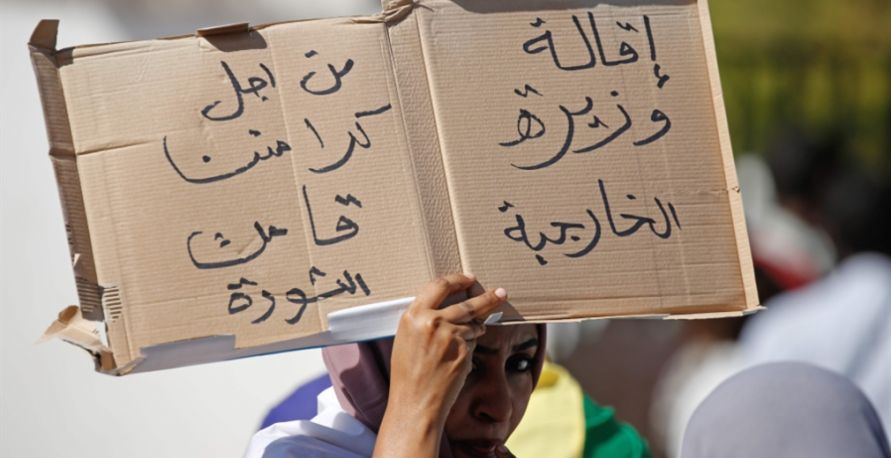 إقالة
وزيرة
الخارجية
من اجل
كرامتنا
قامت
الثورة